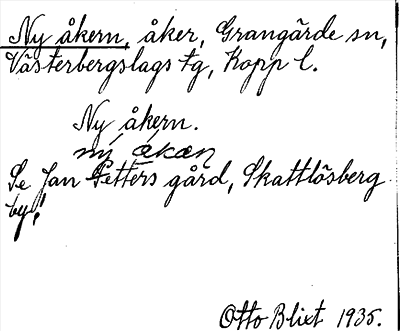 Ny åkern, åker, Grangärde sn,
Västerbergslags tg, Kopp l.
Ny åkern.
Se Jan Petters gård, Skattlösberg
by!
Otto Blixt 1935.